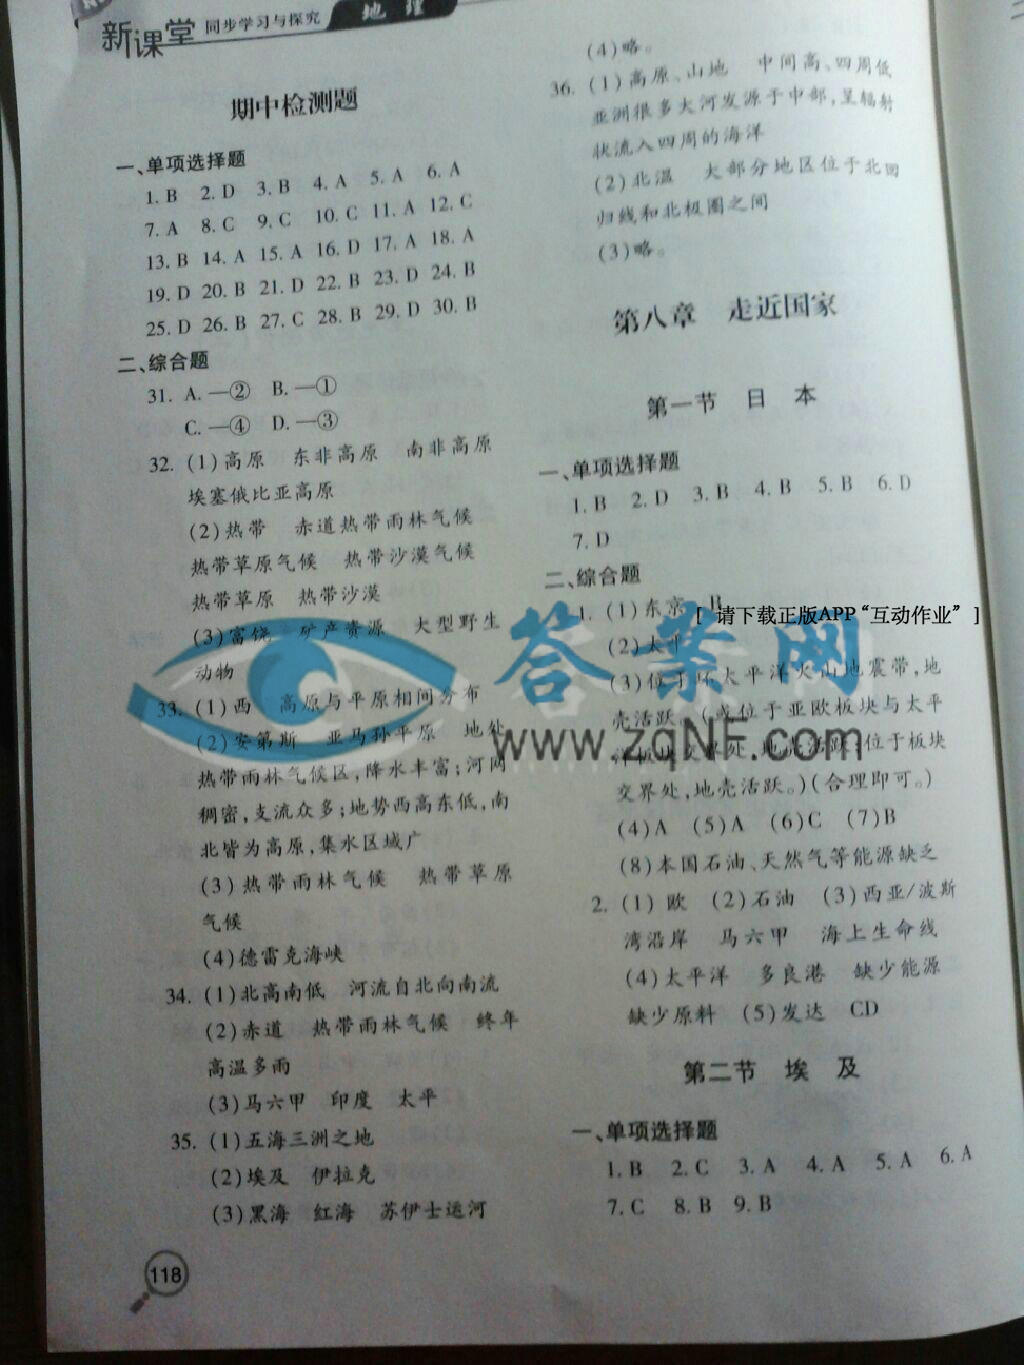 新课堂 同步学习与探究 地理
期中检测题
一、单项选择题
1. B 2. D 3. B 4. A 5. A 6. A
7. A 8. C 9. C 10. C 11. A 12. C
13. B 14. A 15. A 16. D 17. A 18. A
19. D 20. B 21. D 22. B 23. D 24. B
25. D 26. B 27. C 28. B 29. D 30. B
二、综合题
31. A. —② B. —①
C. —④ D. —③
32. (1)高原 东非高原 南非高原
埃塞俄比亚高原
(2)热带 赤道热带雨林气候
热带草原气候 热带沙漠气候
热带草原 热带沙漠
(3)富饶 矿产资源 大型野生
动物
33. (1)西 高原与平原相间分布
(2)安第斯 亚马孙平原 地处
热带雨林气候区,降水丰富;河网
稠密,支流众多;地势西高东低,南
北皆为高原,集水区域广
(3)热带雨林气候 热带草原
气候
(4)德雷克海峡
34. (1)北高南低 河流自北向南流
(2)赤道 热带雨林气候 终年
高温多雨
(3)马六甲 印度 太平
35. (1)五海三洲之地
(2)埃及 伊拉克
(3)黑海 红海 苏伊士运河
118
(4)略。
36. (1)高原、山地 中间高、四周低
亚洲很多大河发源于中部,呈辐射
状流入四周的海洋
(2)北温 大部分地区位于北回
归线和北极圈之间
(3)略。
第八章 走近国家
第一节 日本
一、单项选择题
1. B 2. D 3. B 4. B 5. B 6. D
7. D
二、综合题
1. (1)东京 B
[ 请下载正版APP“互动作业” ]
(2)太平
(3)位于环太平洋火山地震带,地
壳活跃。(或位于亚欧板块与太平
洋板块交界处,地壳活跃;位于板块
交界处,地壳活跃。)(合理即可。)
(4)A (5)A (6)C (7)B
(8)本国石油、天然气等能源缺乏
2. (1) 欧 (2)石油 (3)西亚/波斯
湾沿岸 马六甲 海上生命线
(4)太平洋 多良港 缺少能源
缺少原料 (5)发达 CD
第二节 埃及
一、单项选择题
1. B 2. C 3. A 4. A 5. A 6. A
7. C 8. B 9. B
答案网
www.zqNF.com